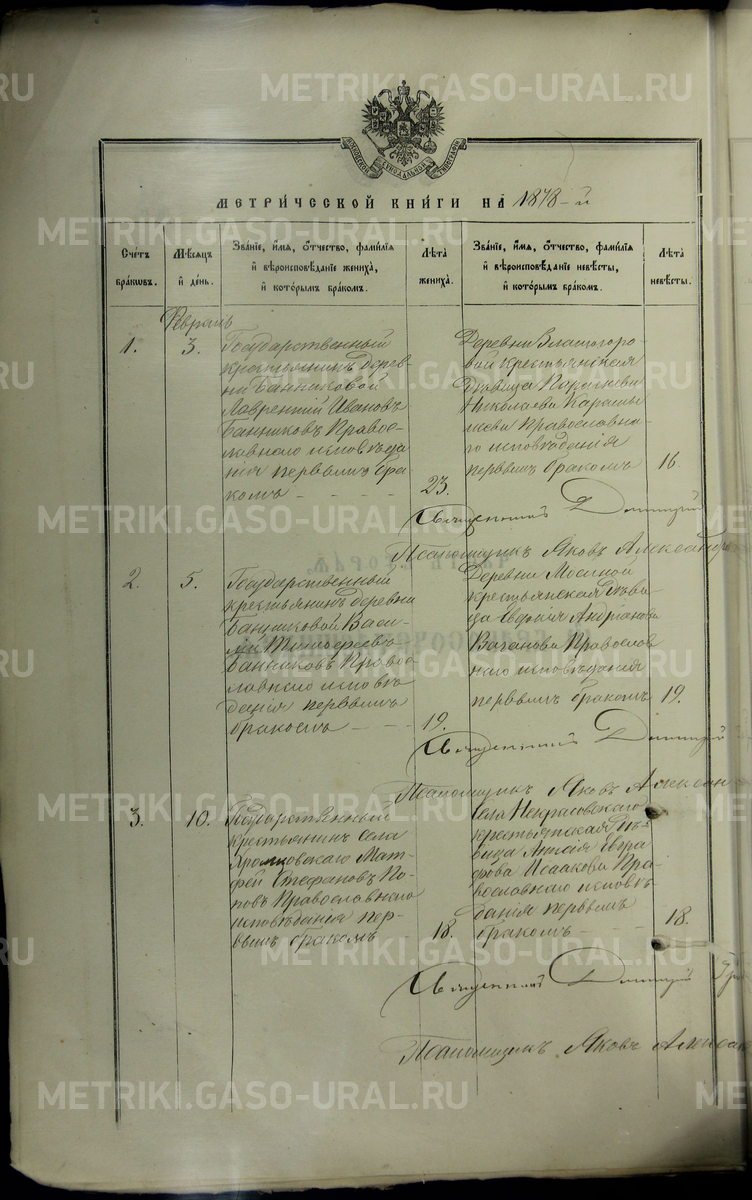 МЕТРИ́ЧЕСКОЙ КНИ́ГИ НА 1878-й
Счетъ браковъ.
Мѣсяцъ и день.
Званіе, имя, отчество, фамилія и вѣроисповѣданіе жениха, и которымъ бракомъ.
Лѣта жениха.
Званіе, имя, отчество, фамилія и вѣроисповѣданіе невѣсты, и которымъ бракомъ.
Лѣта невѣсты.
Февраль
1.
3.
Государственный
крестьянинъ дерев-
ни
Лаврентій Ивановъ
Банниковъ Правос-
лавнаго исповѣда
нія первымъ бра
комъ
23.
Деревни
вой крестьянская
дѣвица
Николаева
Православна-
го исповѣданія
первымъ бракомъ
16
Священникъ Димитрій
Псаломщикъ Яковъ Александр
2.
5.
Государственный
крестьянинъ деревни
Банниковой Васи-
лій Тимофеевъ
Банниковъ Право-
славнаго исповѣ
данія первымъ
бракомъ
19.
Деревни Мосиной
крестьянская дѣви
ца Евдокія Андріанова
Православ
наго исповѣданія
первымъ бракомъ
19.
Священникъ Димитрій
Псаломщикъ Яковъ Алексан
3.
10.
Государственный
крестьянинъ села
Храмцовскаго Мат-
фей Стефановъ По-
повъ Православнаго
исповѣданія пер-
вымъ бракомъ
18.
Села Некрасовскаго
крестьянская дѣ-
вица Евгра
фова Исаакова Пра
вославнаго исповѣ
данія первымъ
бракомъ
18.
Священникъ Димитрій
Псаломщикъ Яковъ Алекса
METRIKI.GASO-URAL.RU